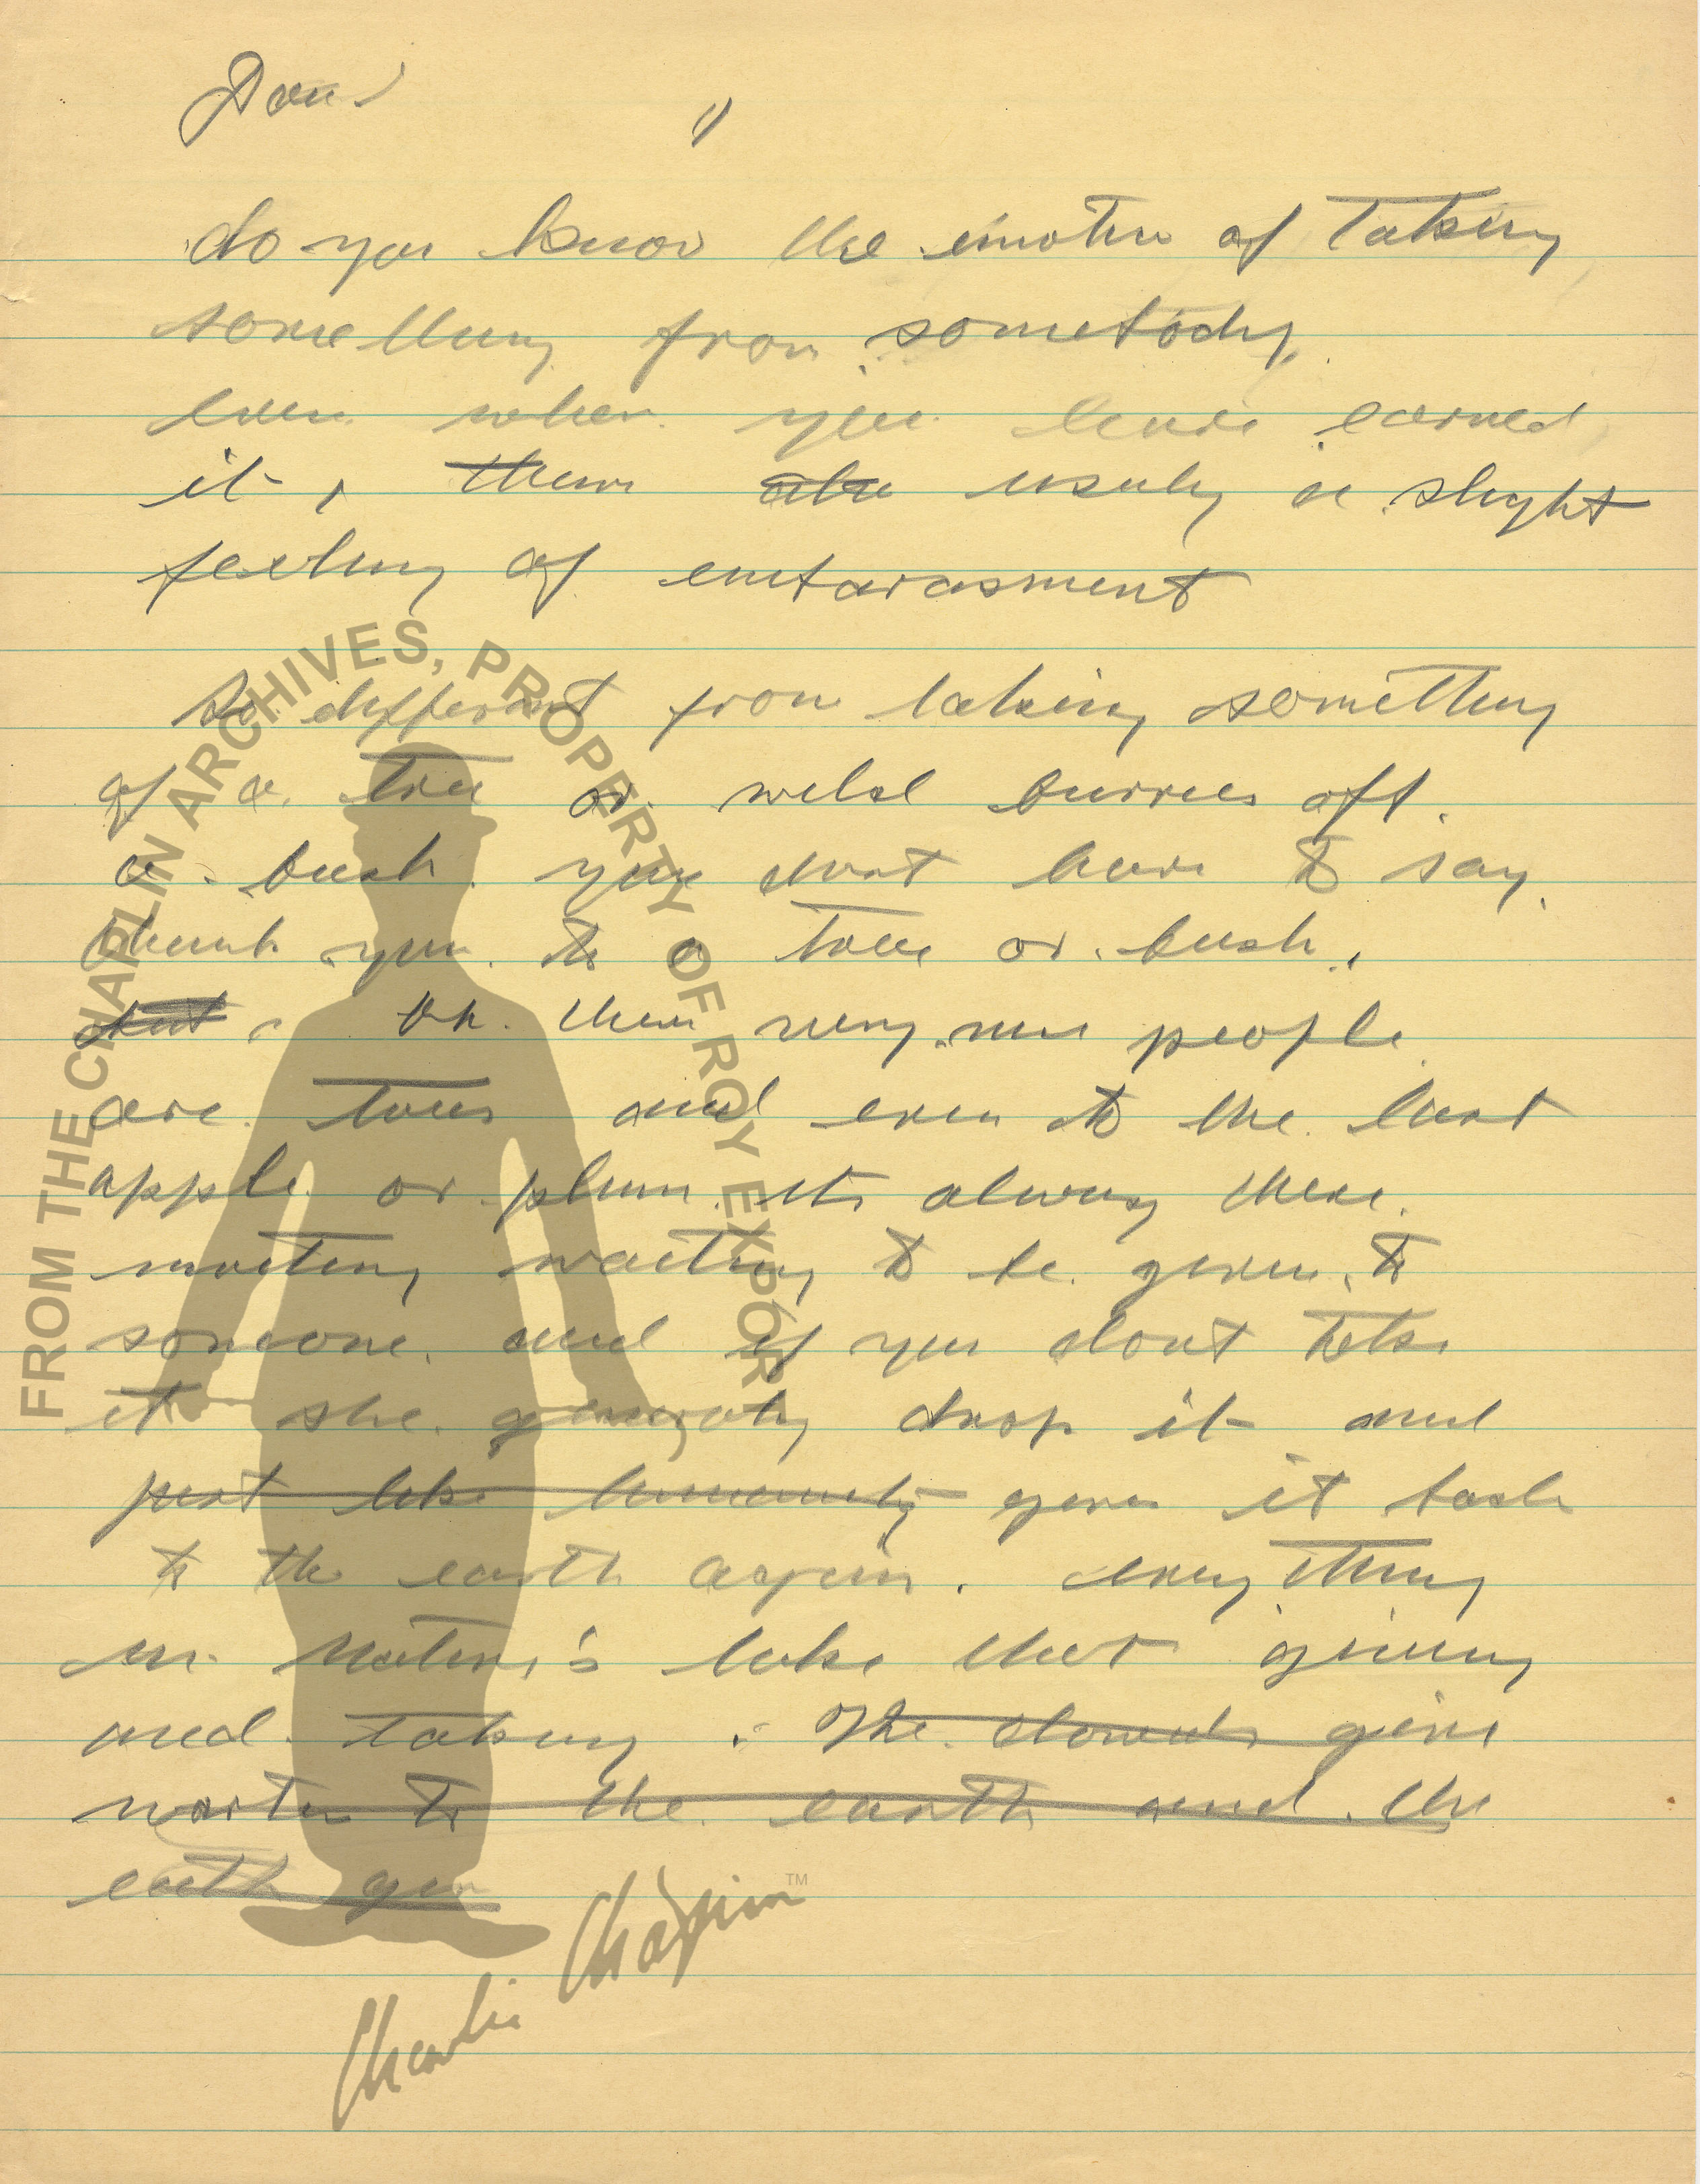 do you know the emotion of taking
something from somebody
even when you have earned
it, there usuly a slight
feeling of embarasment
So different from taking something
of a tree or wild burries off
a bush. you dont have to say
thank you to a tree or bush.
but Oh. there very nice people
are trees and even to the last
apple or plum its always there
waiting to be given to
someone. and if you dont take
it she generaly drop it and
just like humanity gives it back
to the earth again. everything
in Nature's like that giving
and taking. The clouds give
water to the earth and the
earth giv
FROM THE CHAPLIN ARCHIVES, PROPERTY OF ROY EXPORT
Charlie Chaplin™